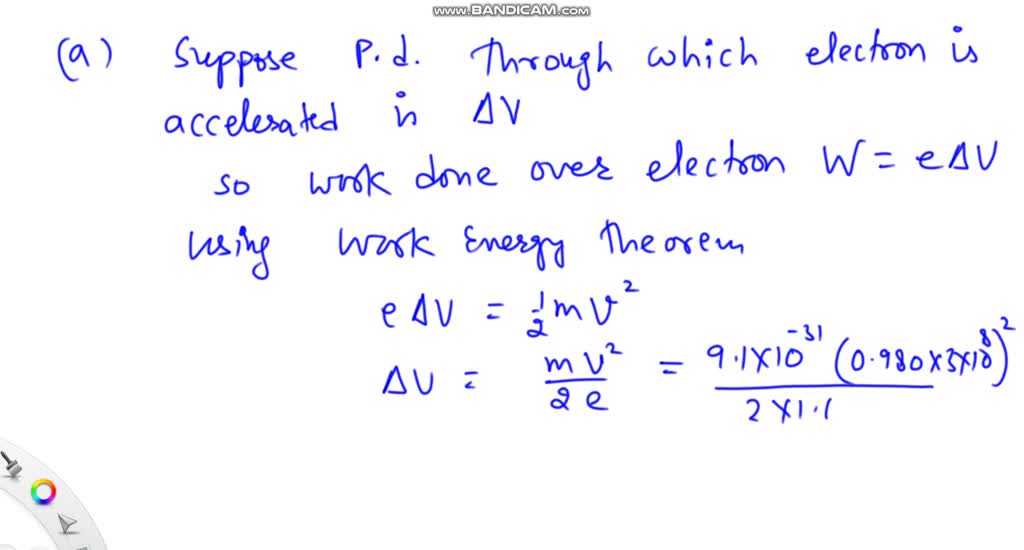 www.BANDICAM.com
(a) Suppose P.d. through which electron is
accelerated is ΔV
so work done over electron W = eΔV
using work Energy theorem
eΔV = 1/2 mv²
ΔV = mv²/2e = 9.1×10⁻³¹ (0.980×3×10⁸)²/2×1.1